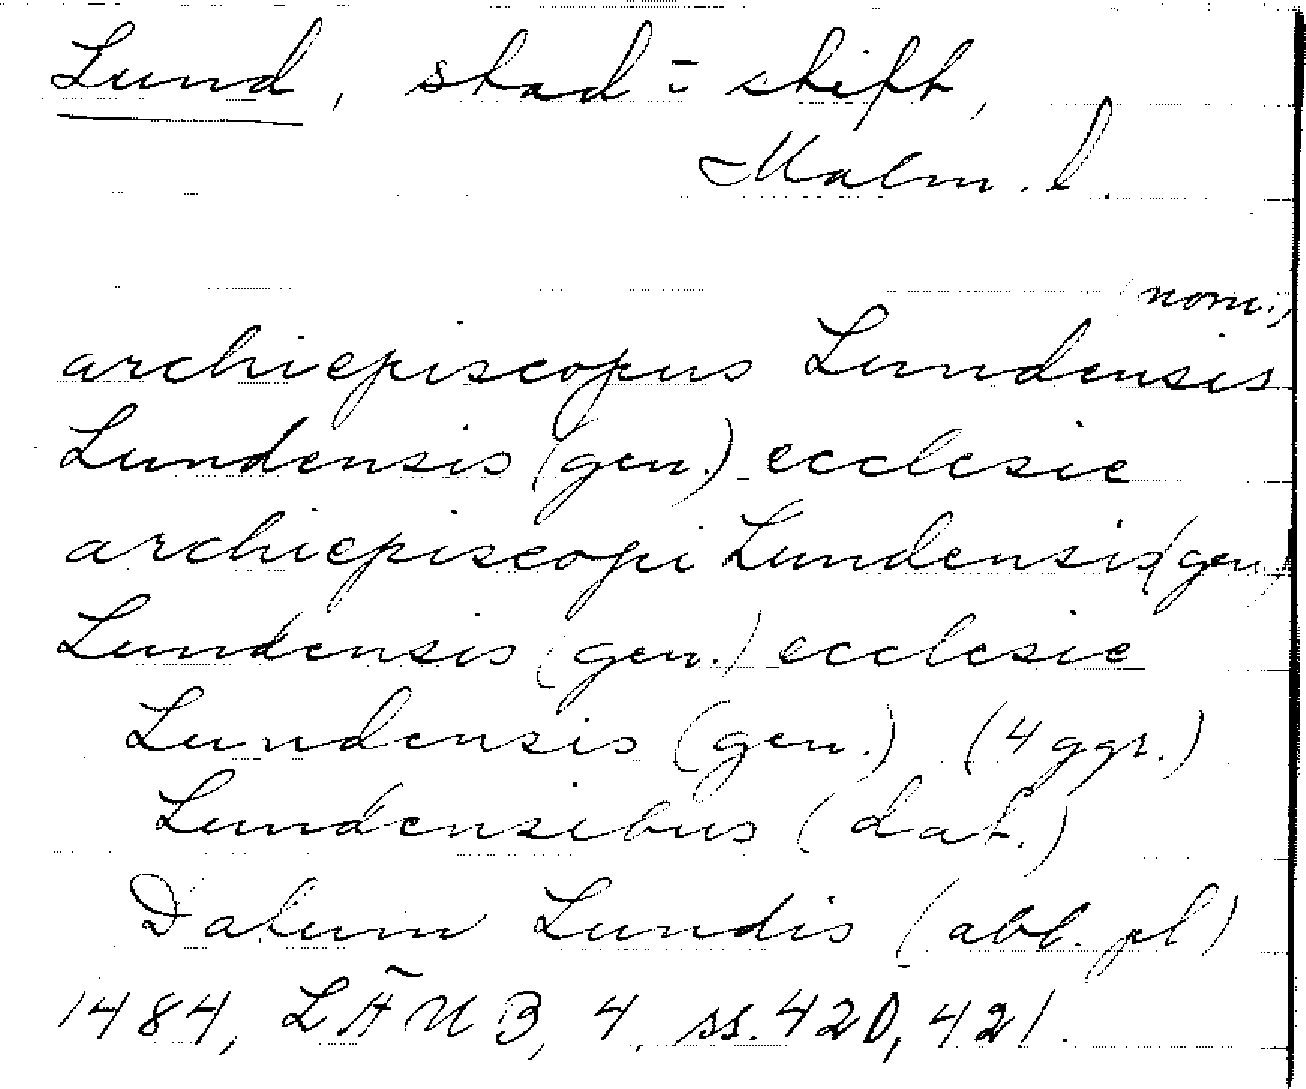 Lund, stad = stift,
Malm. l.
(nom.)
archiepiscopus Lundensis
Lundensis (gen.) ecclesie
archiepiscopi Lundensis (gen.)
Lundensis (gen.) ecclesie
Lundensis (gen.) (4 ggr.)
Lundensibus (dat.)
Datum Lundis (abl. pl)
1484, LÄUB, 4, ss. 420, 421.